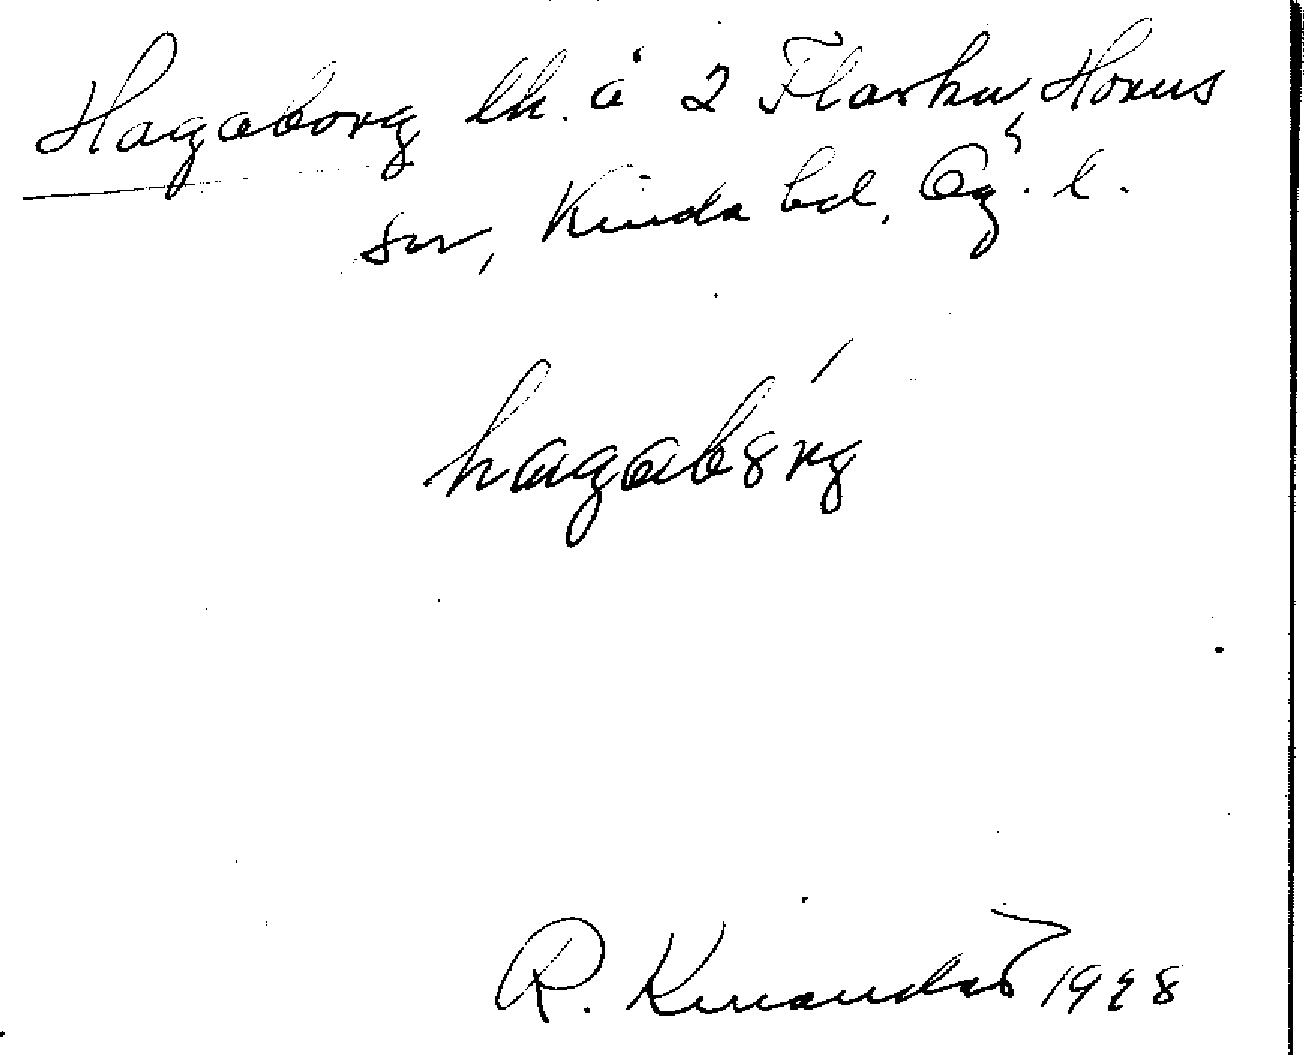 Hagaborg lh. å 2 Flarken, Horns
sn, Kinda hd, Ög. l.
hagabȯrg
R. Kinander 1928